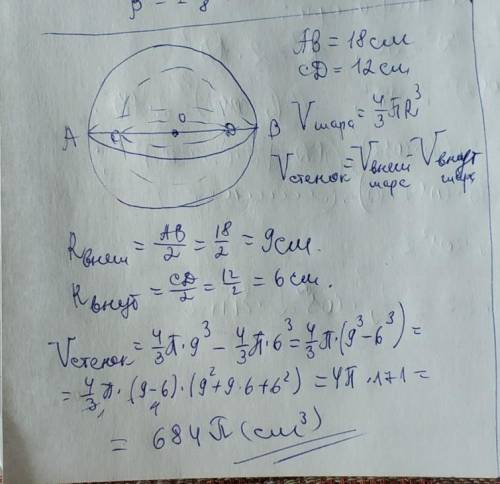 β = - 8
AB = 18 см
CD = 12 см
A C O D B
V шара = 4/3 πR³
V стенок = V внеш шара V внут шара
R внеш = AB/2 = 18/2 = 9 см.
R внут = CD/2 = 12/2 = 6 см.
V стенок = 4/3 π · 9³ - 4/3 π · 6³ = 4/3 π · (9³ - 6³) =
= 4/3 π · (9-6) · (9² + 9 · 6 + 6²) = 4π · 171 =
= 684 π (см³)